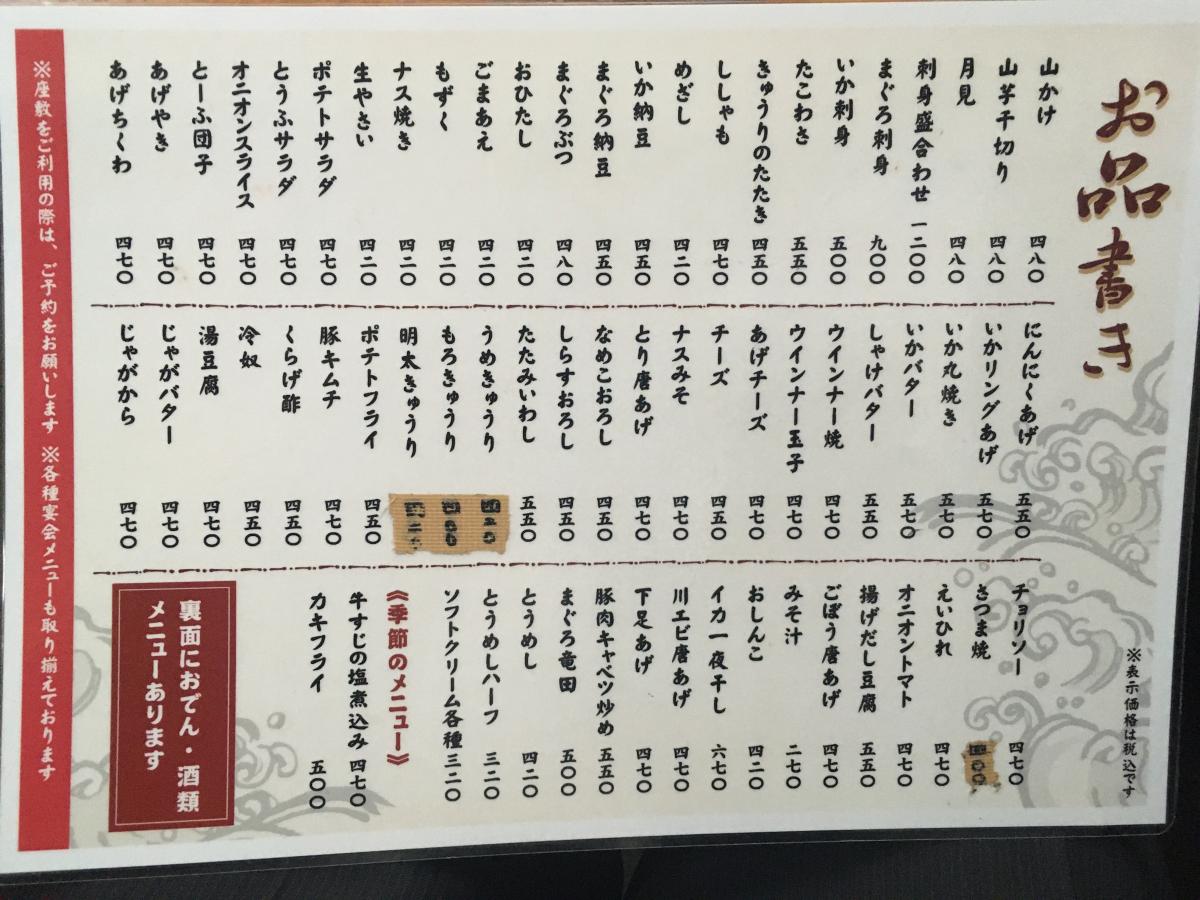 お品書き
※表示価格は税込です
山かけ 四八〇
山芋千切り 四八〇
月見 四八〇
刺身盛合わせ 一二〇〇
まぐろ刺身 九〇〇
いか刺身 五〇〇
たこわさ 五五〇
きゅうりのたたき 四五〇
ししゃも 四七〇
めざし 四二〇
いか納豆 四五〇
まぐろ納豆 四五〇
まぐろぶつ 四八〇
おひたし 四二〇
ごまあえ 四二〇
もずく 四二〇
ナス焼き 四二〇
生やさい 四二〇
ポテトサラダ 四七〇
とうふサラダ 四七〇
オニオンスライス 四七〇
とーふ団子 四七〇
あげやき 四七〇
あげちくわ 四七〇
にんにくあげ 五五〇
いかリングあげ 五七〇
いか丸焼き 五七〇
いかバター 五七〇
しゃけバター 五五〇
ウインナー焼 四七〇
ウインナー玉子 四七〇
あげチーズ 四七〇
チーズ 四五〇
ナスみそ 四七〇
とり唐あげ 四七〇
なめこおろし 四五〇
しらすおろし 四五〇
たたみいわし 五五〇
うめきゅうり
もろきゅうり
明太きゅうり
ポテトフライ 四五〇
豚キムチ 四七〇
くらげ酢 四五〇
冷奴 四五〇
湯豆腐 四七〇
じゃがバター 四七〇
じゃがから 四七〇
チョリソー 四七〇
さつま焼
えいひれ 四七〇
オニオントマト 四七〇
揚げだし豆腐 五五〇
ごぼう唐あげ 四七〇
みそ汁 二七〇
おしんこ 四二〇
イカ一夜干し 六七〇
川エビ唐あげ 四七〇
下足あげ 四七〇
豚肉キャベツ炒め 五五〇
まぐろ竜田 五〇〇
とうめし 四二〇
とうめしハーフ 三二〇
ソフトクリーム各種 三二〇
《季節のメニュー》
牛すじの塩煮込み 四七〇
カキフライ 五〇〇
裏面におでん・酒類
メニューあります
※座敷をご利用の際は、ご予約をお願いします ※各種宴会メニューも取り揃えております